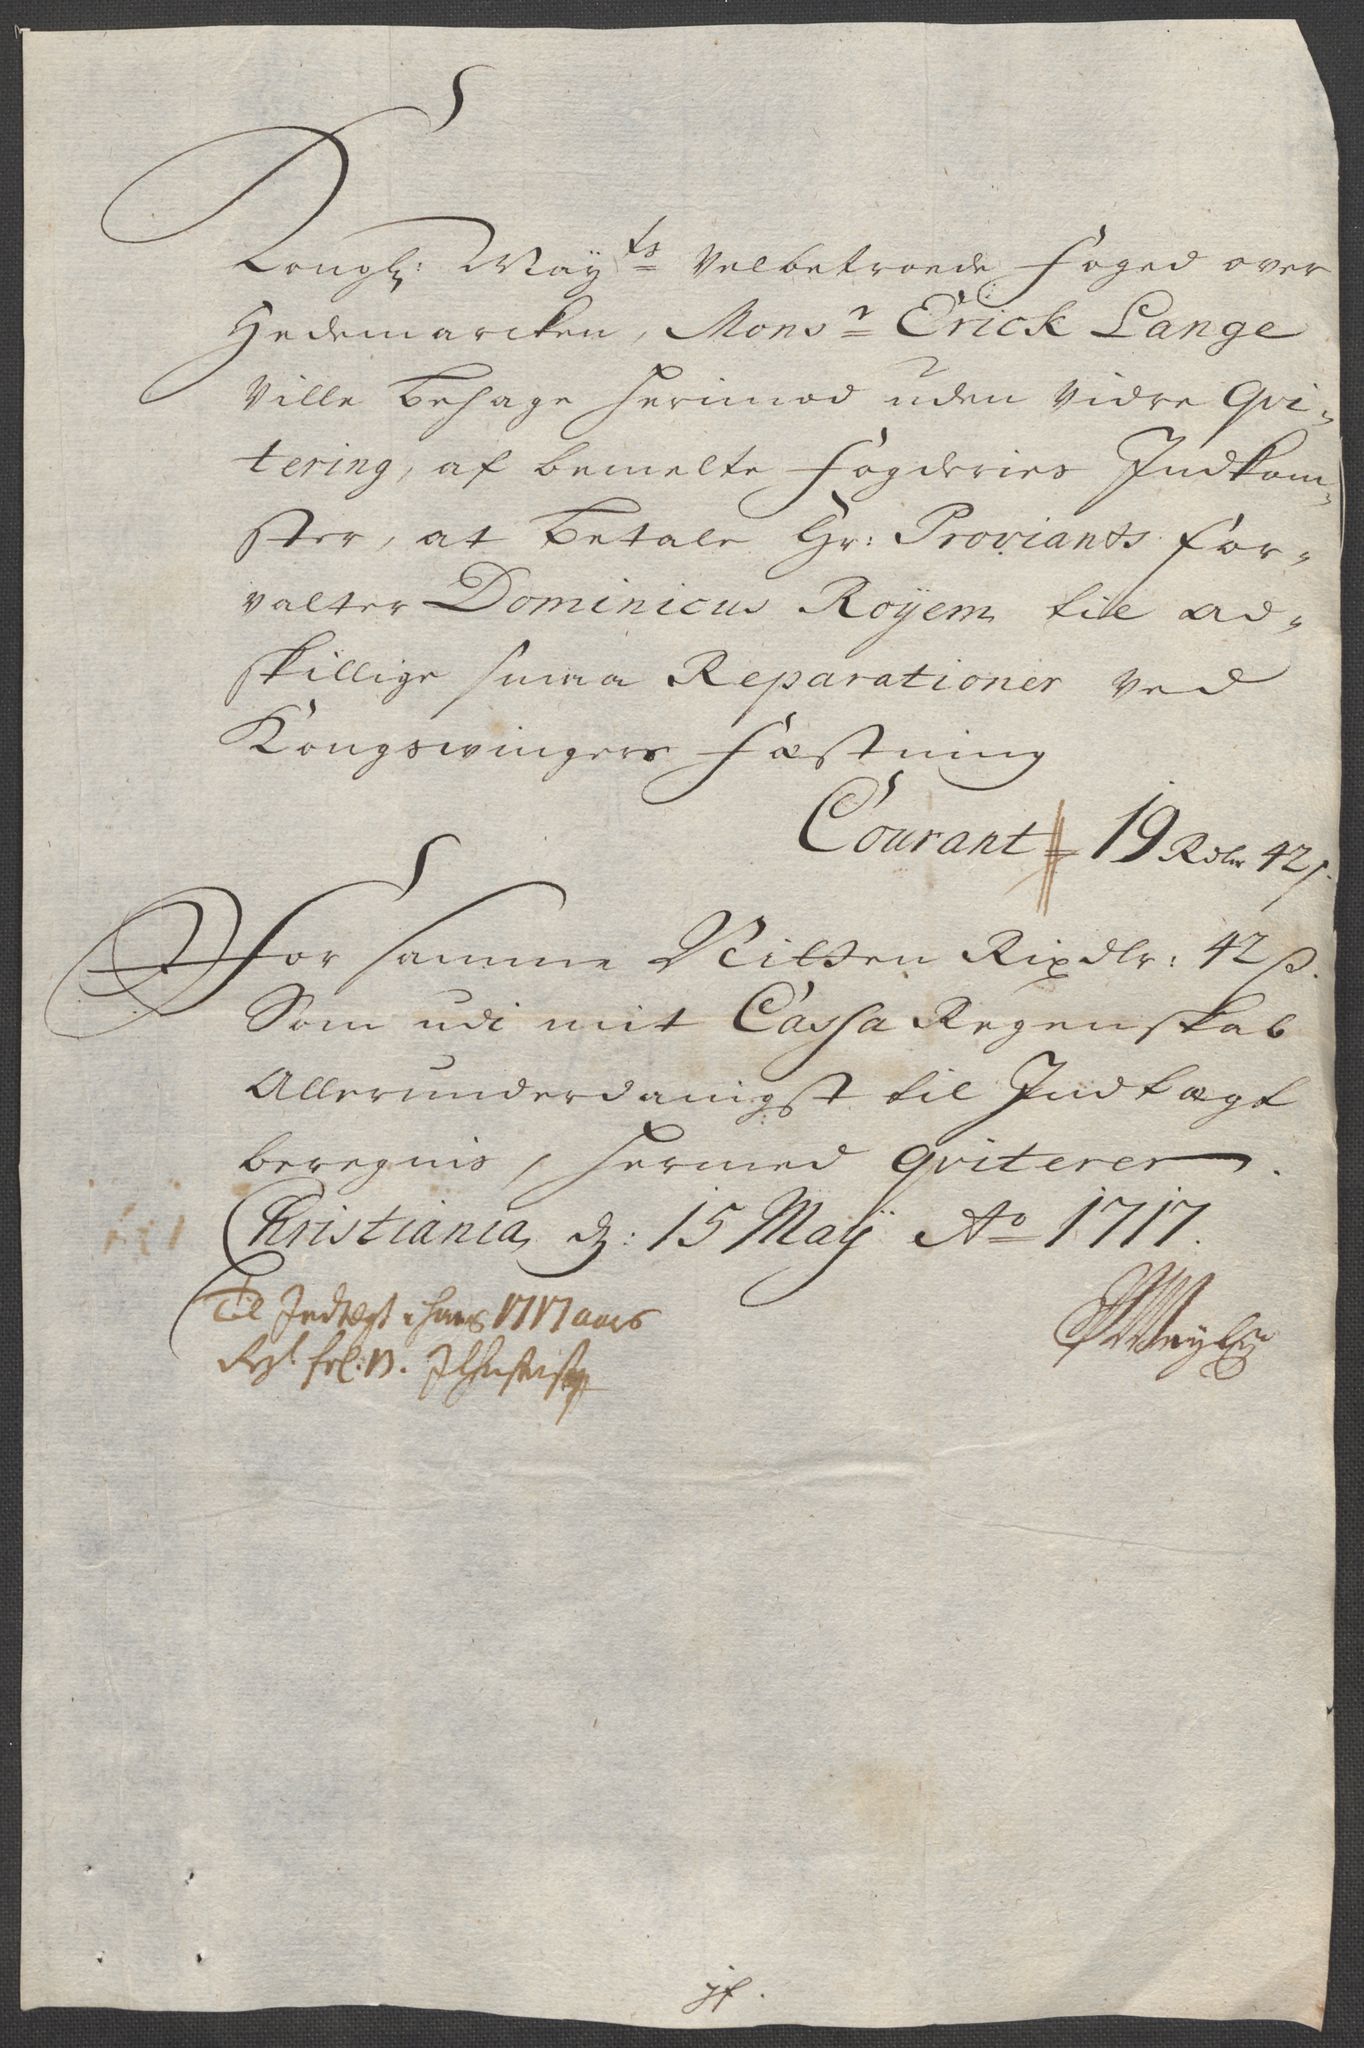 Kongl: May.ts Velbetroede Foged over
Hedemarcken, Mons.r Erick Lange
Ville behage herimod uden Vidre qvi-
tering, af bemelte Fogderies Indkom-
ster, at betale Hr: Proviants For-
valter Dominicus Royem til ad-
skillige smaa Reparationer ved
Kongswingers Fæstning
Courant 19 Rdlr 42 s.
For samme Nitten Rixdlr: 42 s.
Som udi mit Cassa Regenskab
Allerunderdanigst til Indtægt
beregnis, hermed qviterer.
Christiania d: 15 May Ao 1717.
Til Indtægt i hans 1717 aars
fol: 13.